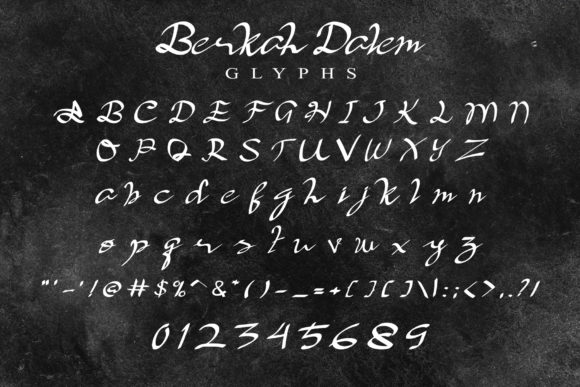 Berkah Dalem
GLYPHS
A B C D E F G H I J K L M N
O P Q R S T U V W X Y Z
a b c d e f g h i j k l m n
o p q r s t u v w x y z
"'~'!@#$%^&*()-_=+[]{}\|:;<>,.?/
0 1 2 3 4 5 6 8 9